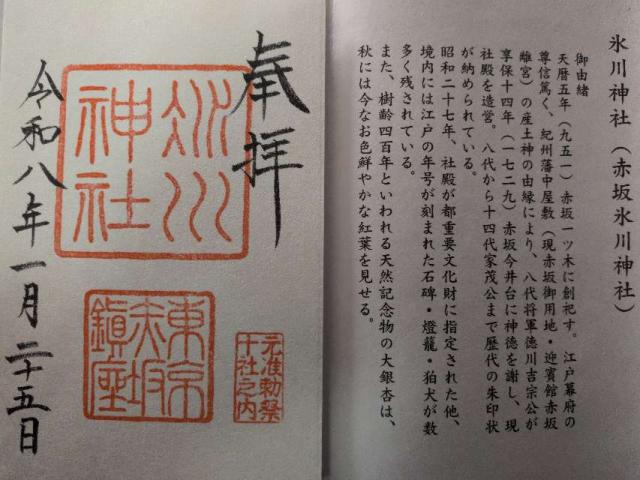 氷川神社(赤坂氷川神社)
御由緒
天暦五年(九五一)赤坂一ツ木に創祀す。江戸幕府の
尊信篤く、紀州藩中屋敷(現赤坂御用地・迎賓館赤坂
離宮)の産土神の由縁により、八代将軍徳川吉宗公が
享保十四年(一七二九)赤坂今井台に神徳を謝し、現
社殿を造営。八代から十四代家茂公まで歴代の朱印状
が納められている。
昭和二十七年、社殿が都重要文化財に指定された他、
境内には江戸の年号が刻まれた石碑・燈籠・狛犬が数
多く残されている。
また、樹齢四百年といわれる天然記念物の大銀杏は、
秋には今なお色鮮やかな紅葉を見せる。
奉拝
氷川
神社
東京
赤坂
鎮座
元准勅祭
十社之内
令和八年一月二十五日